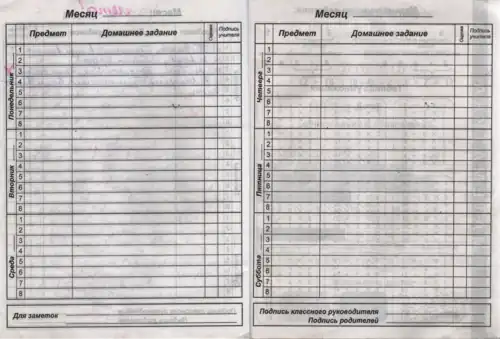 Месяц
Предмет Домашнее задание Оценка Подпись учителя
Понедельник
1
2
3
4
5
6
7
8
Вторник
1
2
3
4
5
6
7
8
Среда
1
2
3
4
5
6
7
8
Для заметок
Месяц
Предмет Домашнее задание Оценка Подпись учителя
Четверг
1
2
3
4
5
6
7
8
Пятница
1
2
3
4
5
6
7
8
Суббота
1
2
3
4
5
6
7
8
Подпись классного руководителя
Подпись родителей